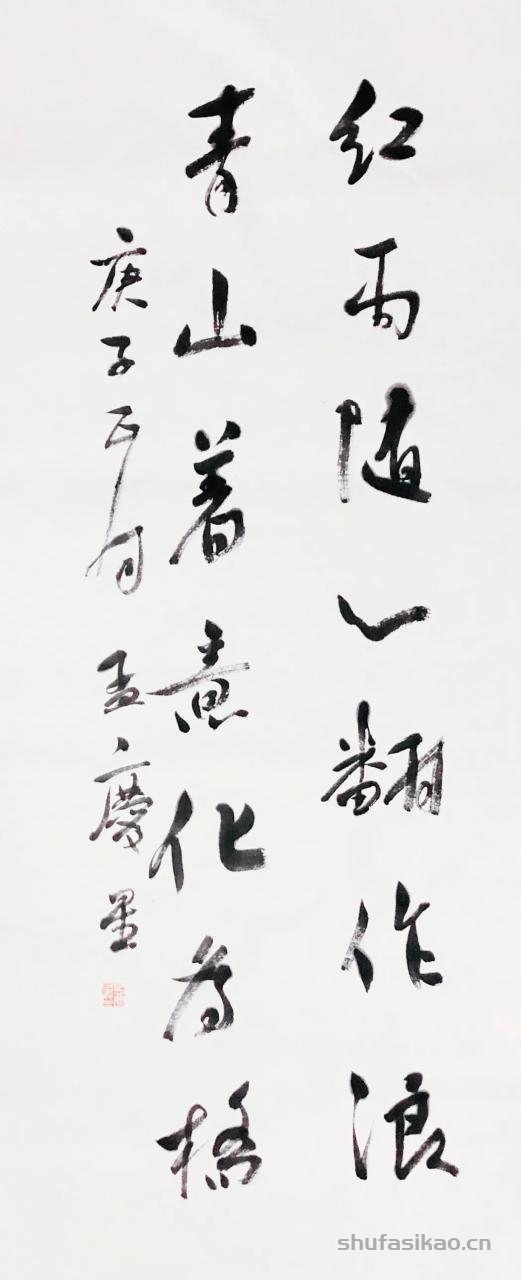 红雨随心翻作浪
青山着意化为橋
庚子五月 孟慶星
shufasikao.cn